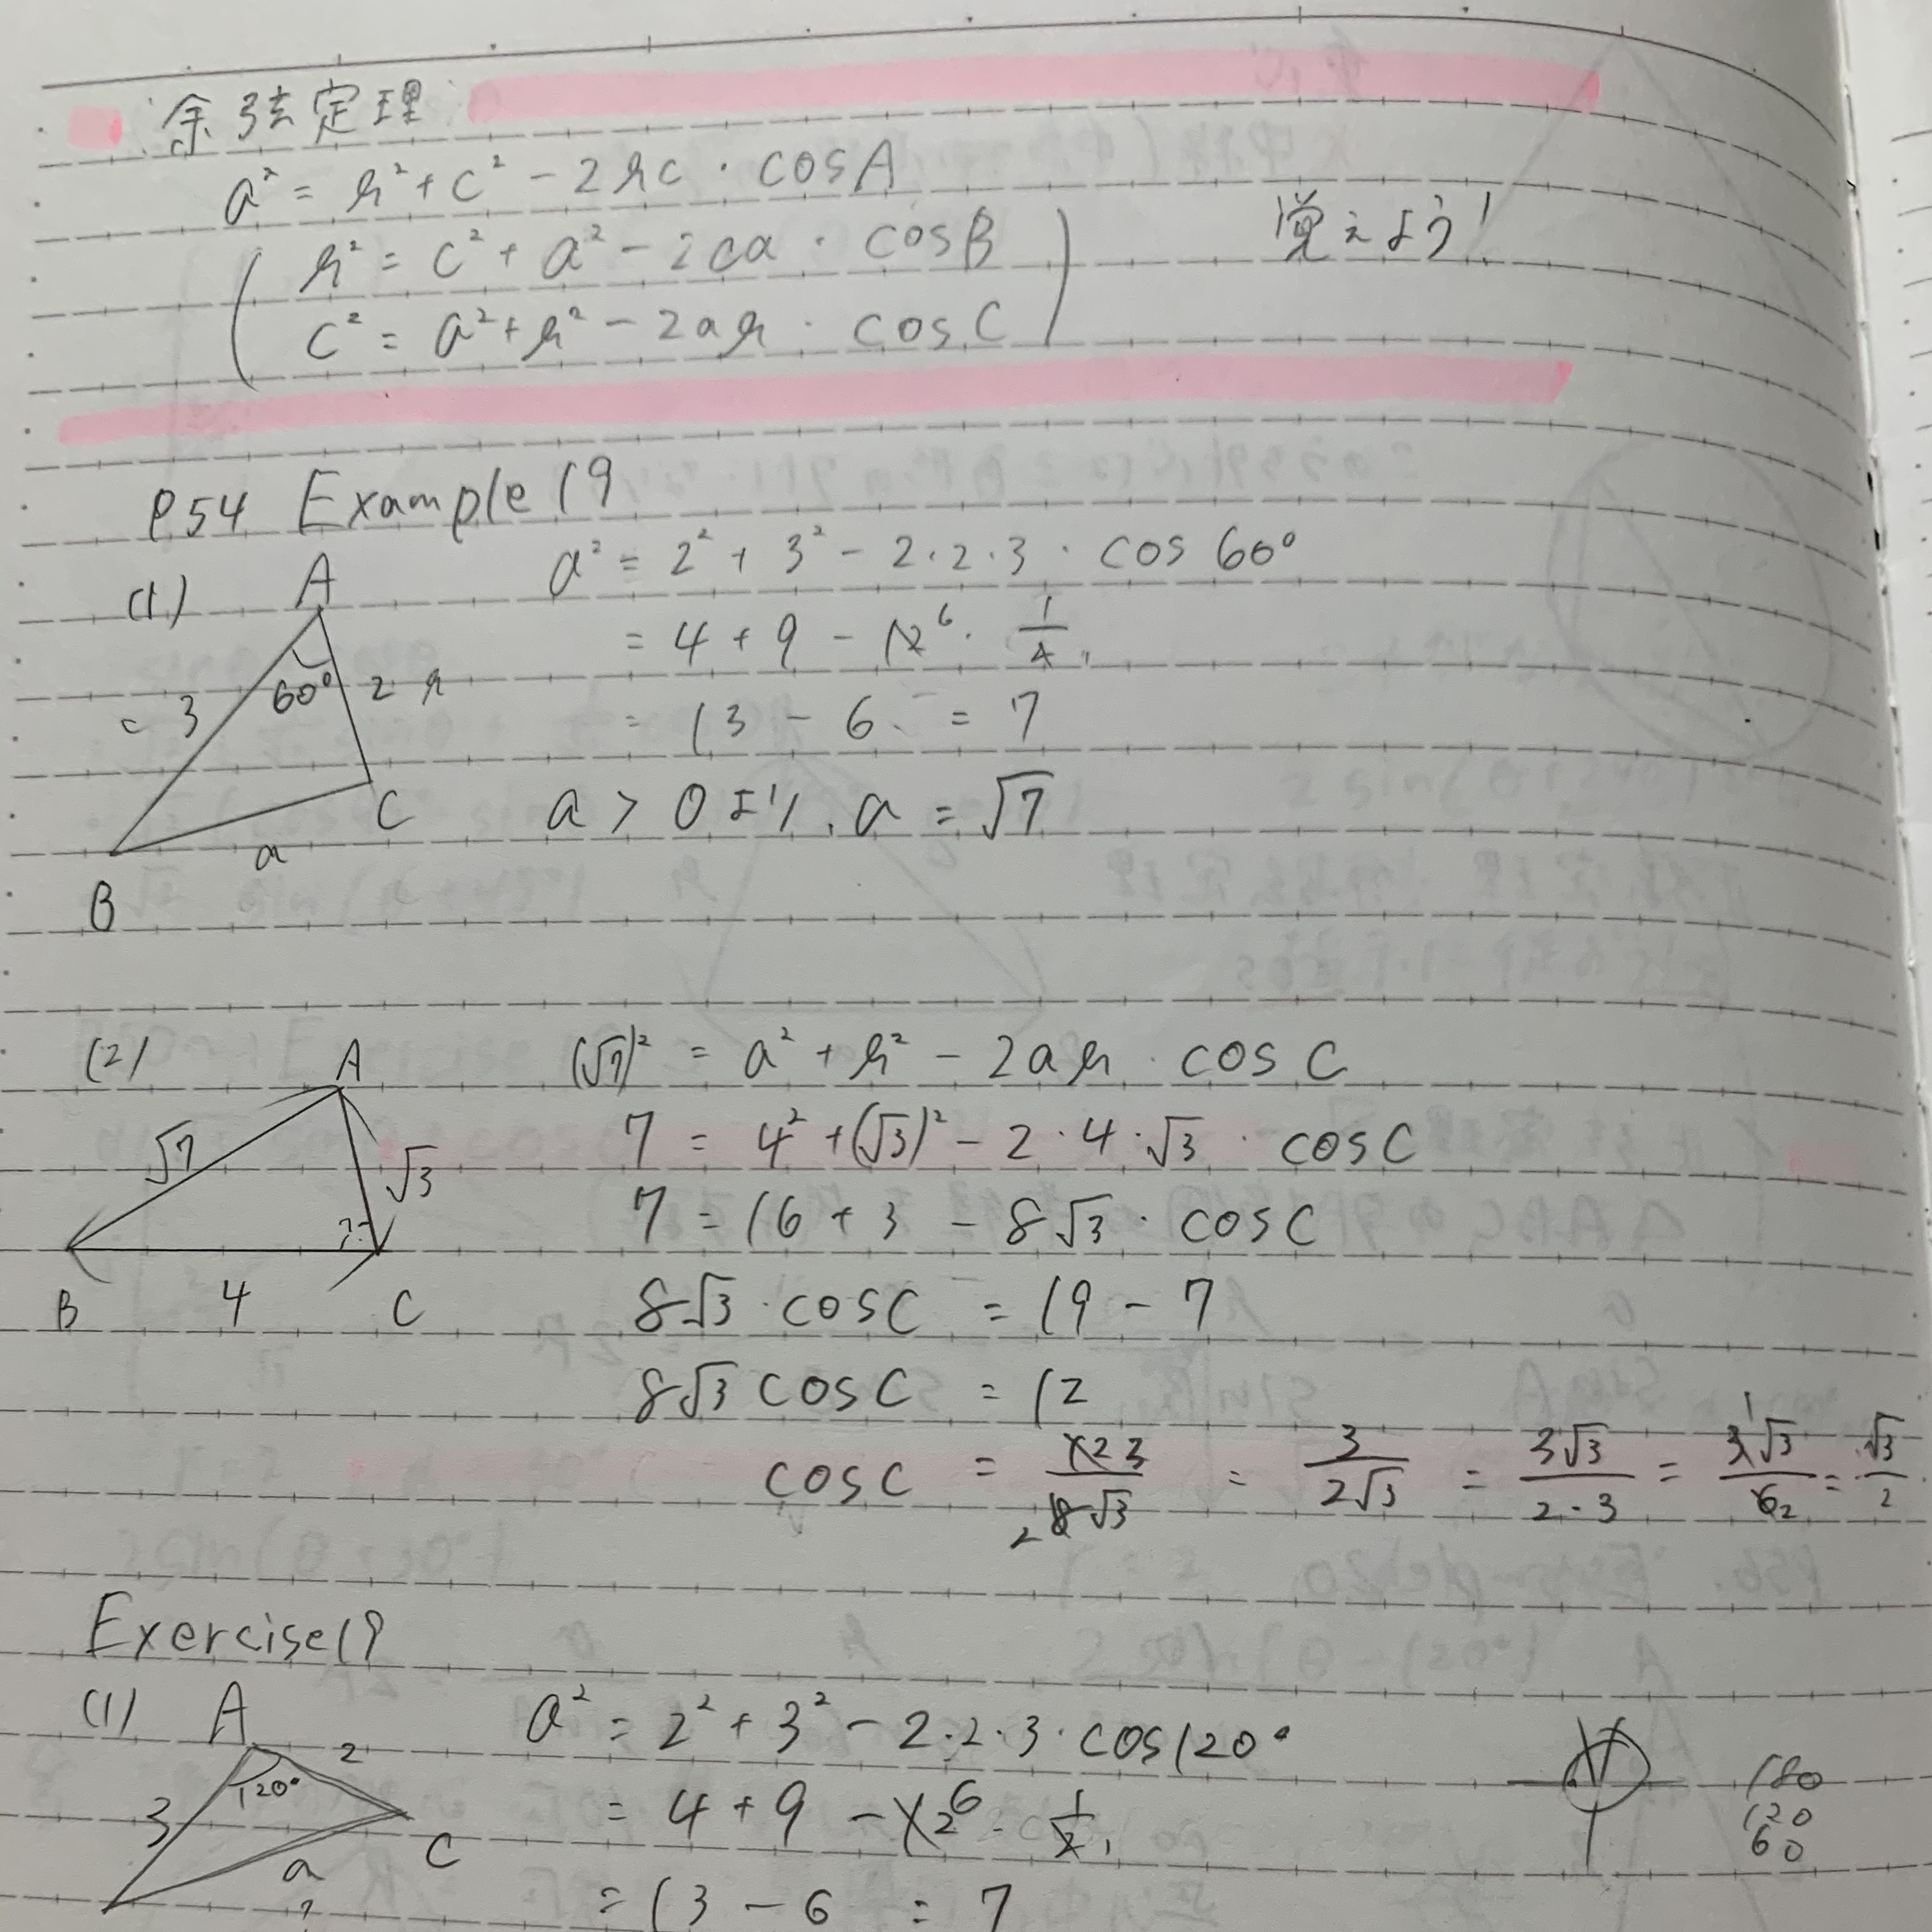 余弦定理
a² = b² + c² - 2bc · cosA
( b² = c² + a² - 2ca · cosB
c² = a² + b² - 2ab · cosC )
覚えよう!
P54 Example 19
(1)
A
60°
c 3
2 b
a
B
C
a² = 2² + 3² - 2·2·3 · cos 60°
= 4 + 9 - 12 6 · 1/2 1
= 13 - 6 = 7
a > 0 より, a = √7
(2)
A
√7
√3
?
B 4 C
(√7)² = a² + b² - 2ab · cos C
7 = 4² + (√3)² - 2·4·√3 · cosC
7 = 16 + 3 - 8√3 · cosC
8√3 · cosC = 19 - 7
8√3 cosC = 12
cosC = 12 3 / 2 8√3 = 3/2√3 = 3√3/2·3 = 3 1 √3/6 2 = √3/2
Exercise19
(1)
A
2
120°
3
C
a
?
a² = 2² + 3² - 2·2·3 · cos120°
= 4 + 9 - 12 6 · 1/2 1
= 13 - 6 = 7
180
120
60